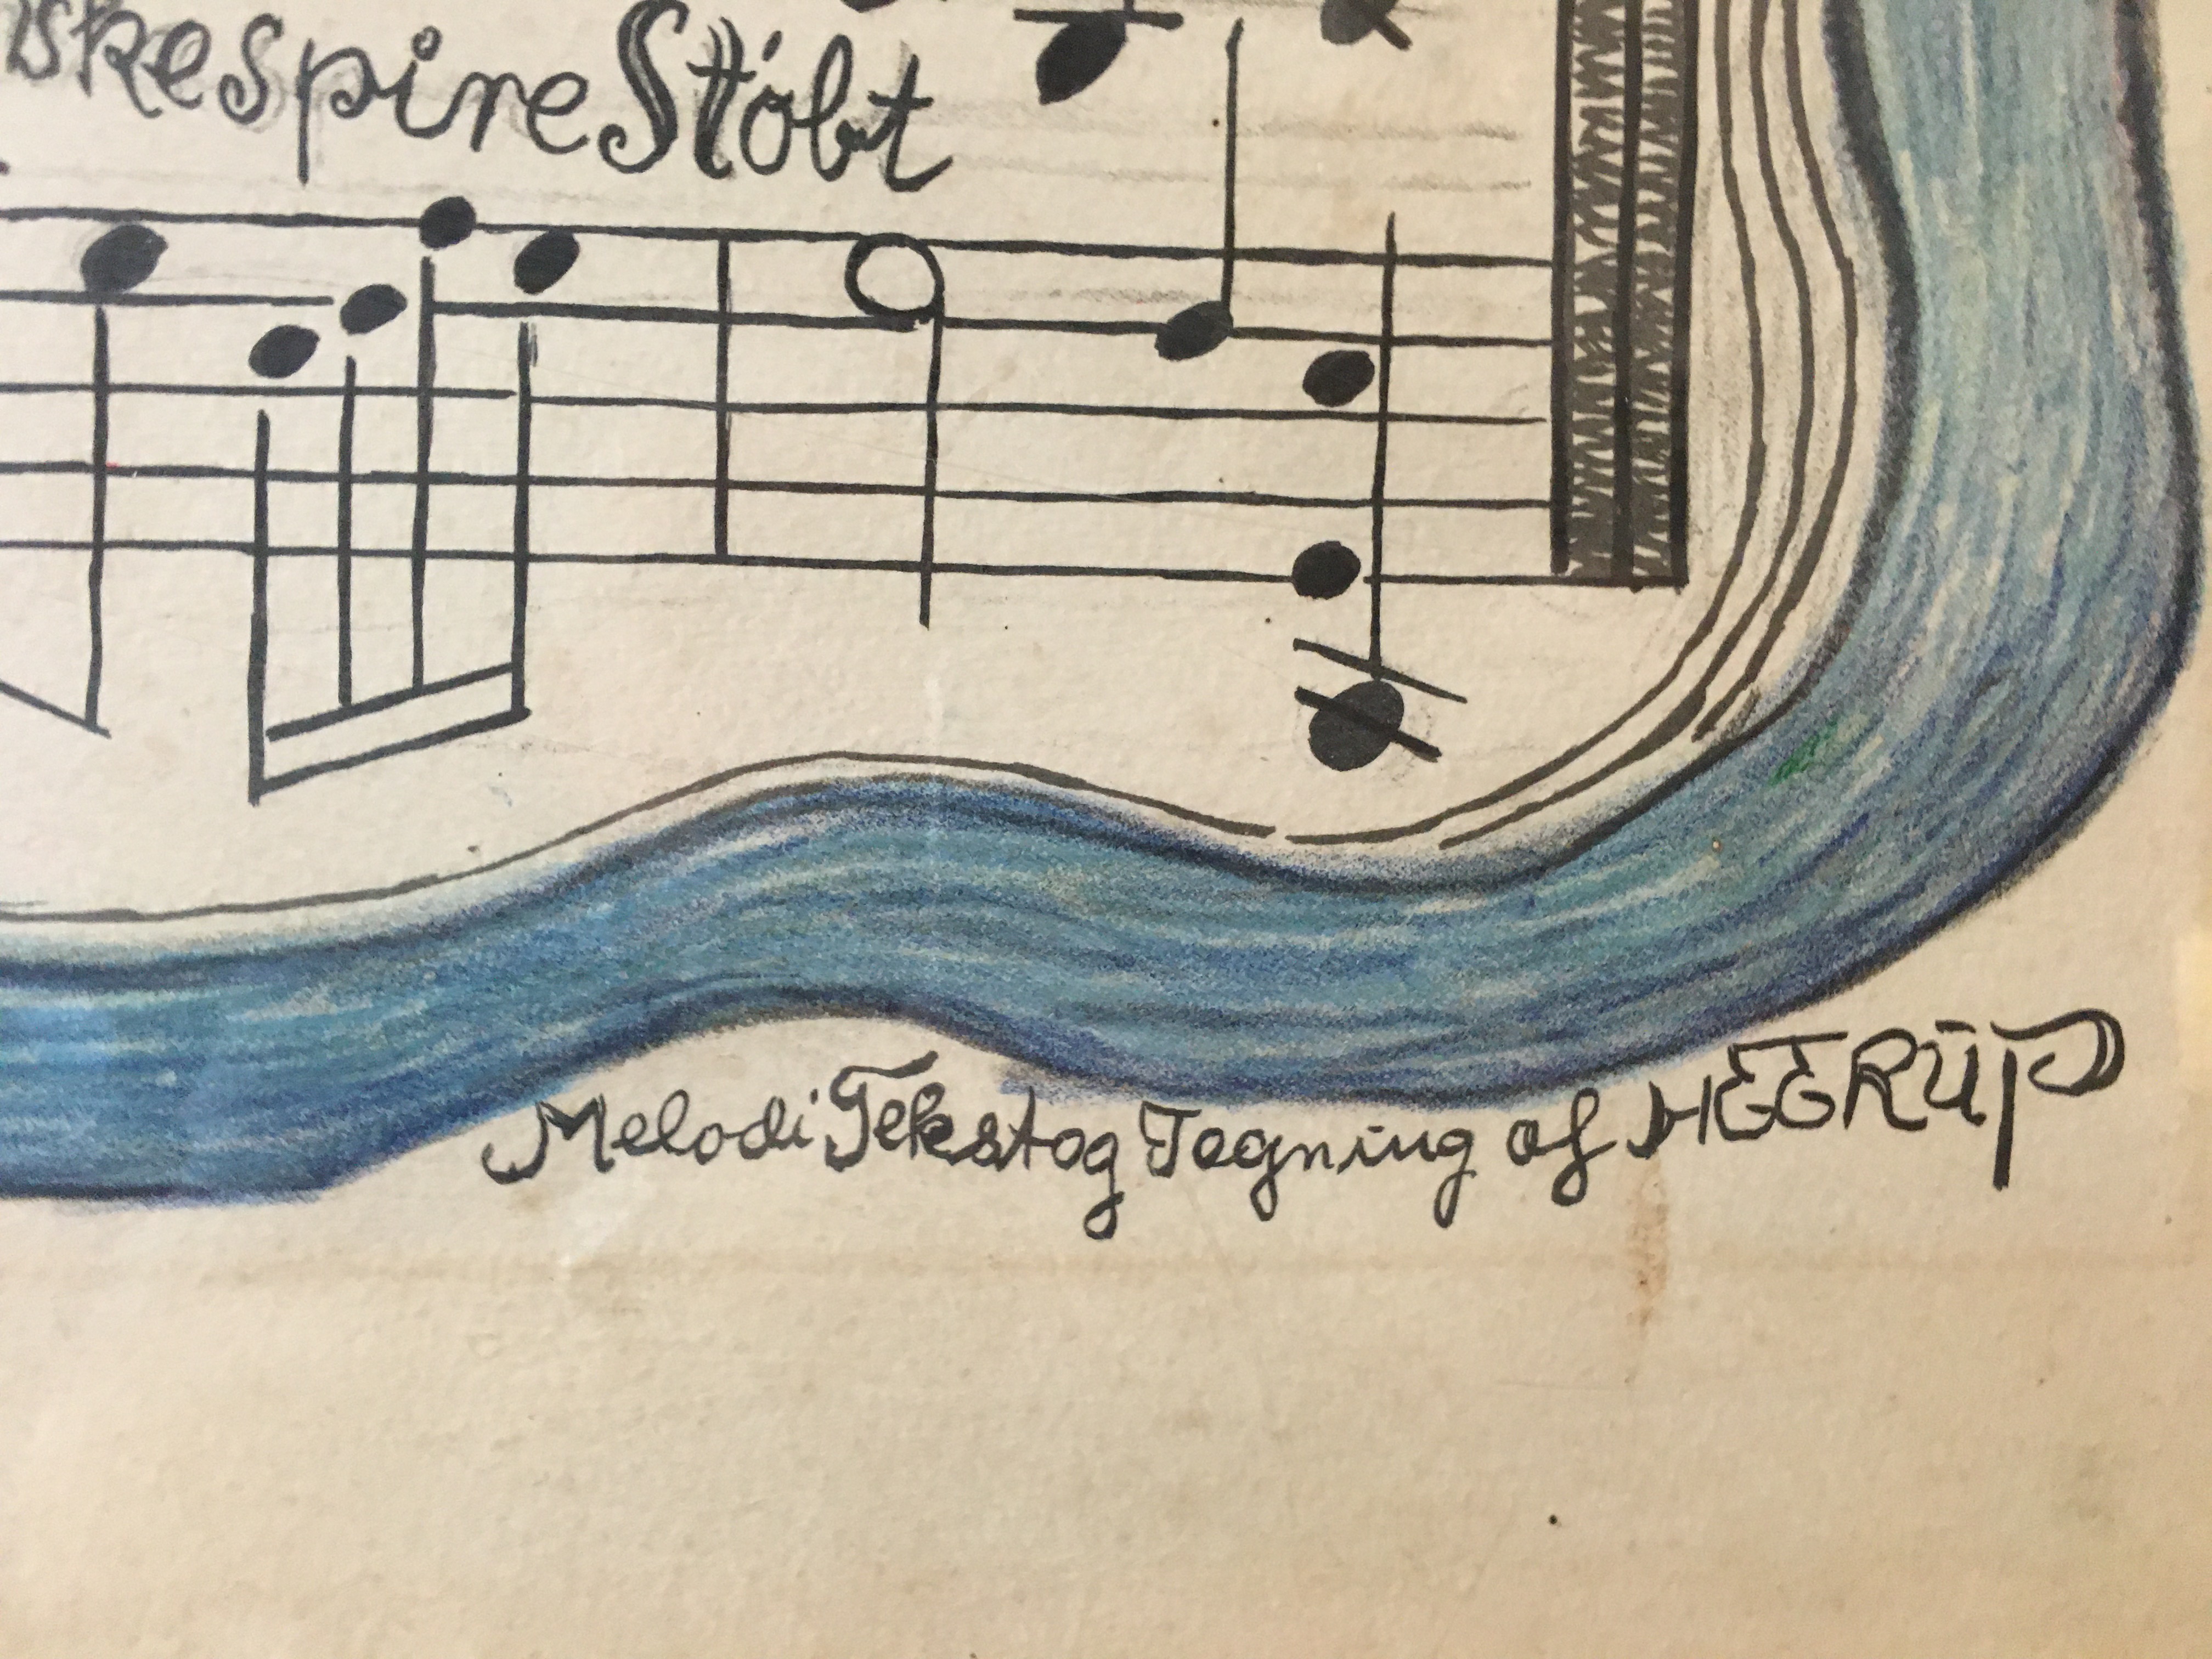 skespire Stöbt
Melodi Tekst og Tegning af HEERUP